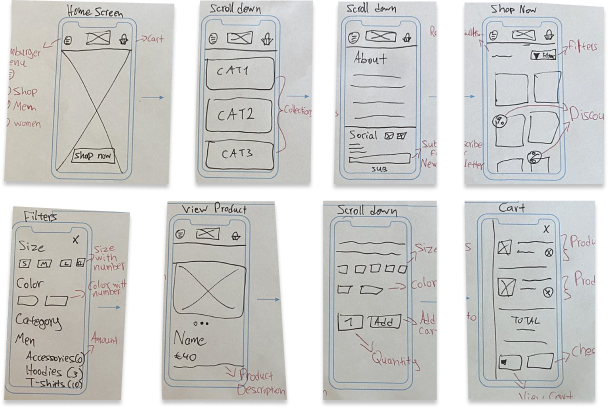 Home Screen
cart
Shop
Men
women
Shop now
Scroll down
CAT1
CAT2
CAT3
Collection
Scroll down
About
Social
SUB
Shop Now
Filters
Discou
Filters
X
Size
S M L
Size
with
number
Color
Color with
number
Category
Men
Amount
Accessories(6)
Hoodies (3)
T-shirts (10)
View Product
Name
€40
Product
Description
Scroll down
Size
Color
1 Add
Add
Car
Quantity
Cart
X
Produ
Prod
TOTAL
Chec
View Cart